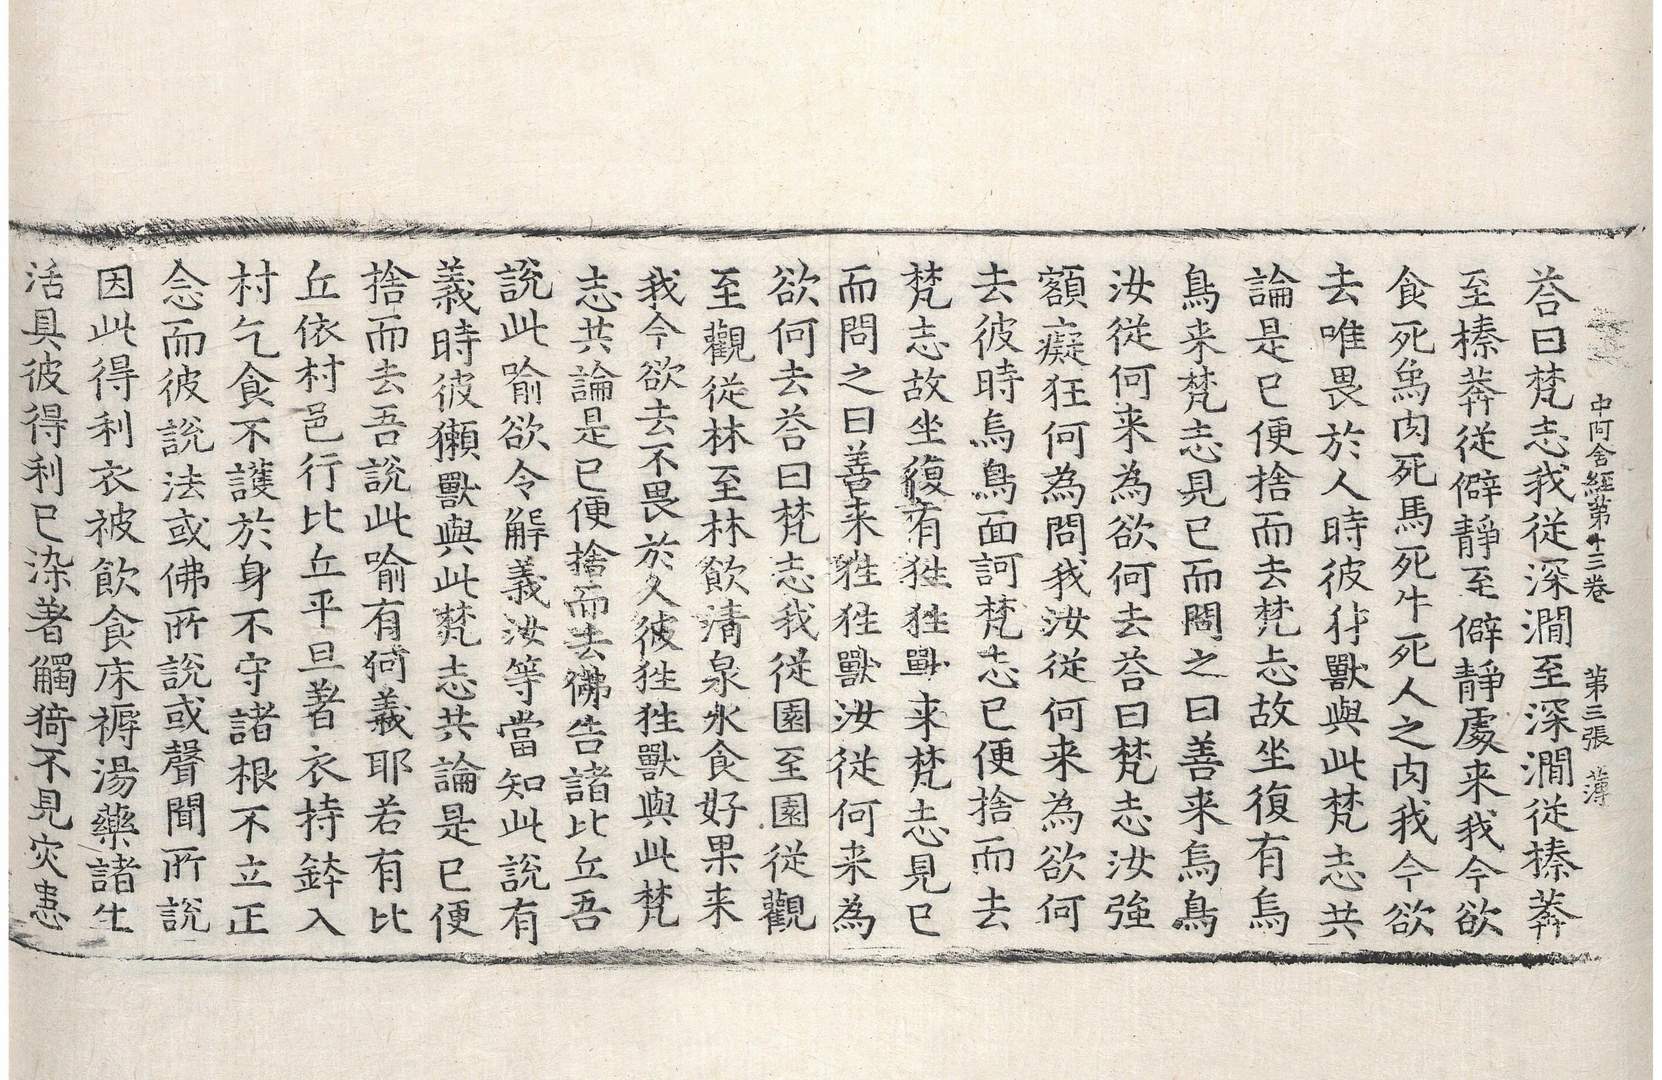 中阿含經第十三卷 第三張 薄
荅曰梵志我從深澗至深澗從榛莽
至榛莽從僻靜至僻靜處来我今欲
食死象肉死馬死牛死人之肉我今欲
去唯畏於人時彼犲獸與此梵志共
論是已便捨而去梵志故坐復有烏
鳥来梵志見已而問之曰善来烏鳥
汝從何来為欲何去荅曰梵志汝強
額癡狂何為問我汝從何来為欲何
去彼時烏鳥面訶梵志已便捨而去
梵志故坐復有狌狌獸来梵志見已
而問之曰善来狌狌獸汝從何来為
欲何去荅曰梵志我從園至園從觀
至觀從林至林飲清泉水食好果来
我今欲去不畏於人彼狌狌獸與此梵
志共論是已便捨而去佛告諸比丘吾
說此喻欲令解義汝等當知此說有
義時彼獺獸與此梵志共論是已便
捨而去吾說此喻有何義耶若有比
丘依村邑行比丘平旦著衣持鉢入
村乞食不護於身不守諸根不立正
念而彼說法或佛所說或聲聞所說
因此得利衣被飲食床褥湯藥諸生
活具彼得利已染著觸猗不見灾患